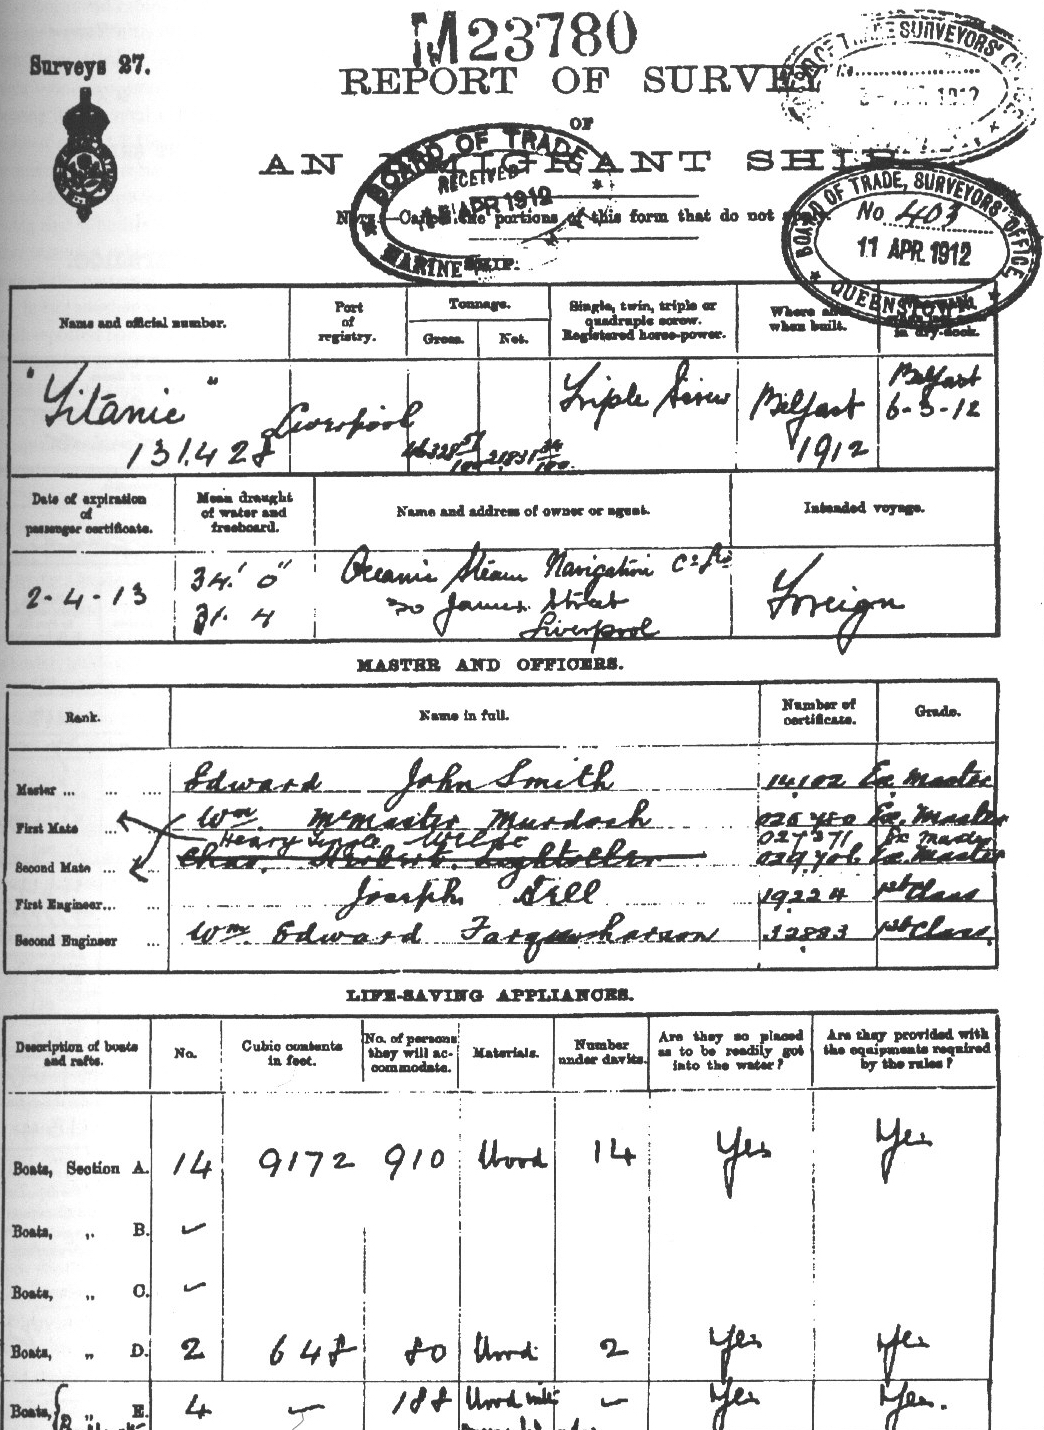 M23780
Surveys 27.
REPORT OF SURVEY
OF
AN EMIGRANT SHIP
BOARD OF TRADE SURVEYORS'
APR. 1912
BOARD OF TRADE
RECEIVED
APR 1912
MARINE
BOARD OF TRADE, SURVEYORS' OFFICE
No. 403
11 APR. 1912
QUEENSTOWN
Note.—Cancel the portions of this form that do not
SHIP.
Name and official number.
Port of registry.
Tonnage.
Gross.
Net.
Single, twin, triple or quadruple screw. Registered horse-power.
Where and when built.
in dry-dock.
"Titanic"
131.428
Liverpool
46328 57/100
21831 34/100
Triple Screw
Belfast
1912
Belfast
6-3-12
Date of expiration of passenger certificate.
Mean draught of water and freeboard.
Name and address of owner or agent.
Intended voyage.
2-4-13
34' 0"
31. 4
Oceanic Steam Navigation Co Ld
30 James Street
Liverpool
Foreign
MASTER AND OFFICERS.
Rank.
Name in full.
Number of certificate.
Grade.
Master ... ... .... Edward John Smith 14102 Ex. Master
First Mate ... ... Wm. McMaster Murdoch 025780 Ex. Master
Henry Tingle Wilde 027371 Ex Master
Second Mate ... ... Chas. Herbert Lightoller 029706 Ex. Master
First Engineer... ... Joseph Bell 19224 1st Class
Second Engineer ... Wm. Edward Farquharson 32883 1st Class.
LIFE-SAVING APPLIANCES.
Description of boats and rafts.
No.
Cubic contents in feet.
No. of persons they will accommodate.
Materials.
Number under davits.
Are they so placed as to be readily got into the water?
Are they provided with the equipments required by the rules?
Boats, Section A. 14 9172 910 Wood 14 Yes Yes
Boats, „ B. ✓
Boats, „ C. ✓
Boats, „ D. 2 648 80 Wood 2 Yes Yes
Boats, „ E. 4 188 Wood with Yes Yes.